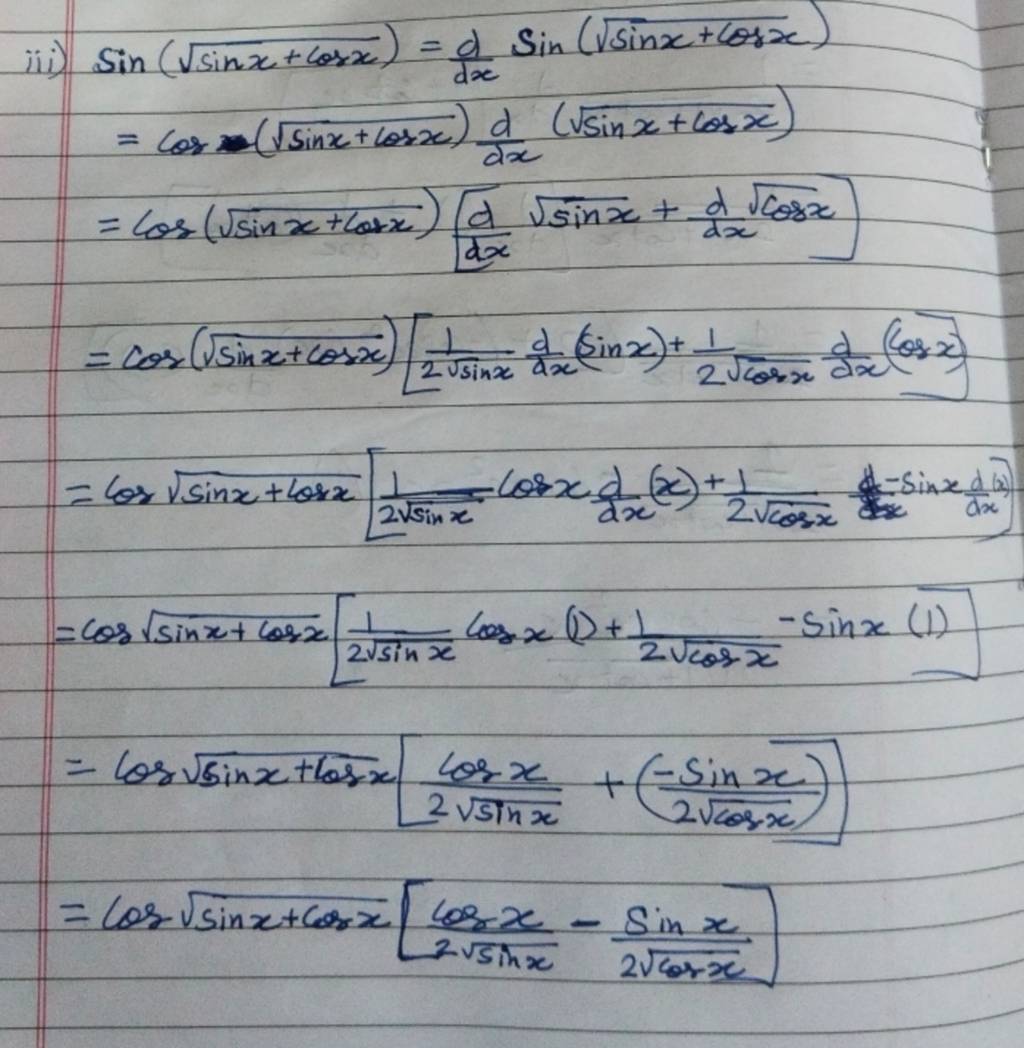 iii) Sin (√sinx + Cosx) = d/dx Sin (√sinx + Cosx)
= Cos (√sinx + Cosx) d/dx (√sinx + Cosx)
= Cos (√sinx + Cosx) [d/dx √sinx + d/dx √Cosx]
= Cos (√sinx + Cosx) [1/2√sinx d/dx (Sinx) + 1/2√cosx d/dx (Cosx)]
= Cos √sinx + Cosx [1/2√sinx Cosx d/dx (x) + 1/2√cosx -Sinx d/dx (x)]
= Cos √sinx + Cosx [1/2√sinx Cosx (1) + 1/2√cosx -Sinx (1)]
= Cos √sinx + Cosx [Cosx/2√sinx + (-Sinx/2√cosx)]
= Cos √sinx + Cosx [Cosx/2√sinx - Sinx/2√cosx]